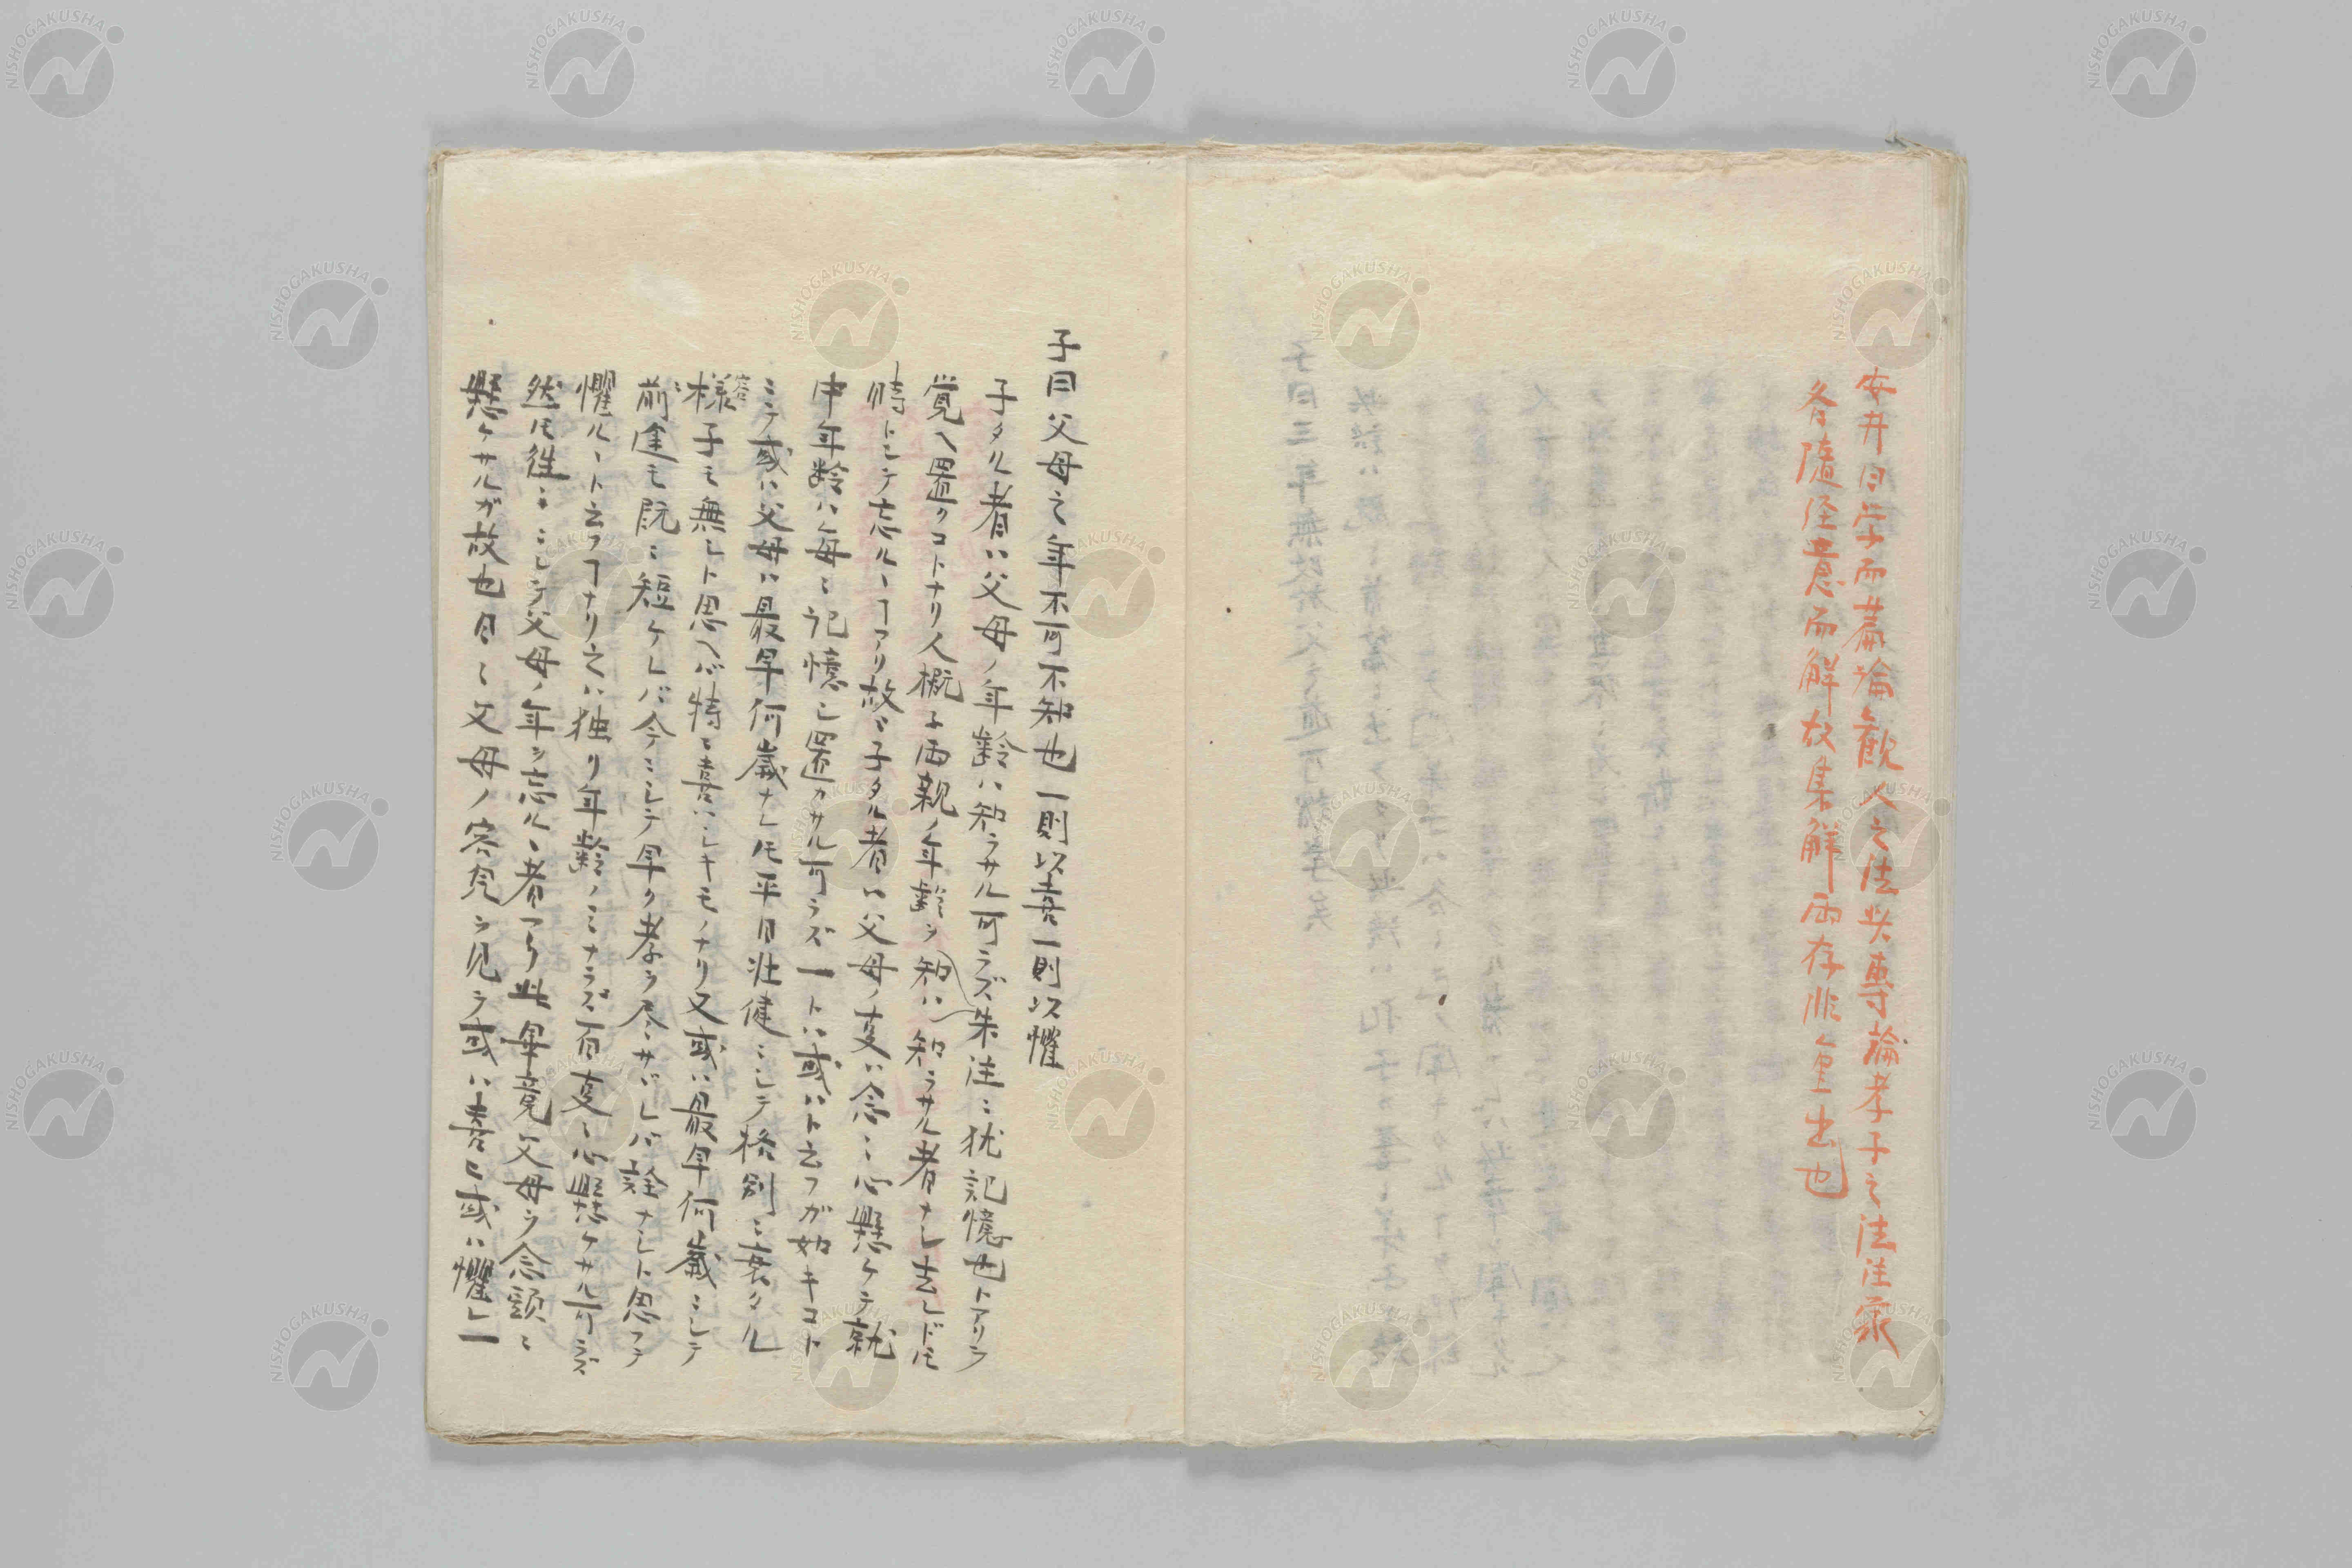 安井曰学而篇論観人之法此專論孝子之法注家
各随経意而解故集解両存非重出也
子曰父母之年不可不知也一則以喜一則以懼
子タル者ハ父母ノ年齢ハ知ラサル可ラズ朱注ニ犹記憶也トアリテ
覚ヘ置クコトナリ人概子両親ノ年齢ヲ知ハ知ラサル者ナシ去レドモ
時トシテ忘ルヽヿアリ故ニ子タル者ハ父母ノ事ハ念ニ心懸ケテ就
中年齢ハ毎ニ記憶シ置カサル可ラズ一トハ或ハト云フガ如キコト
ニテ或ハ父母ハ最早何歳ナレ𪜈平日壮健ニシテ格別ニ衰タル
容
様子モ無シト思ヘバ特ニ喜ハシキモノナリ又或ハ最早何歳ニシテ
前途モ既ニ短ケレバ今ニシテ早ク孝ヲ尽サヾレバ詮ナシト思フテ
懼ルヽト云フヿナリ之ハ独リ年齢ノミナラズ百事ニ心懸ケサル可ラズ
然𪜈往ミニシテ父母ノ年ヲ忘ルヽ者アリ此畢竟父母ヲ念頭ニ
懸ケサルガ故也日ミ父母ノ容皃ヲ見テ或ハ喜ヒ或ハ懼レ一
NISHOGAKUSHA